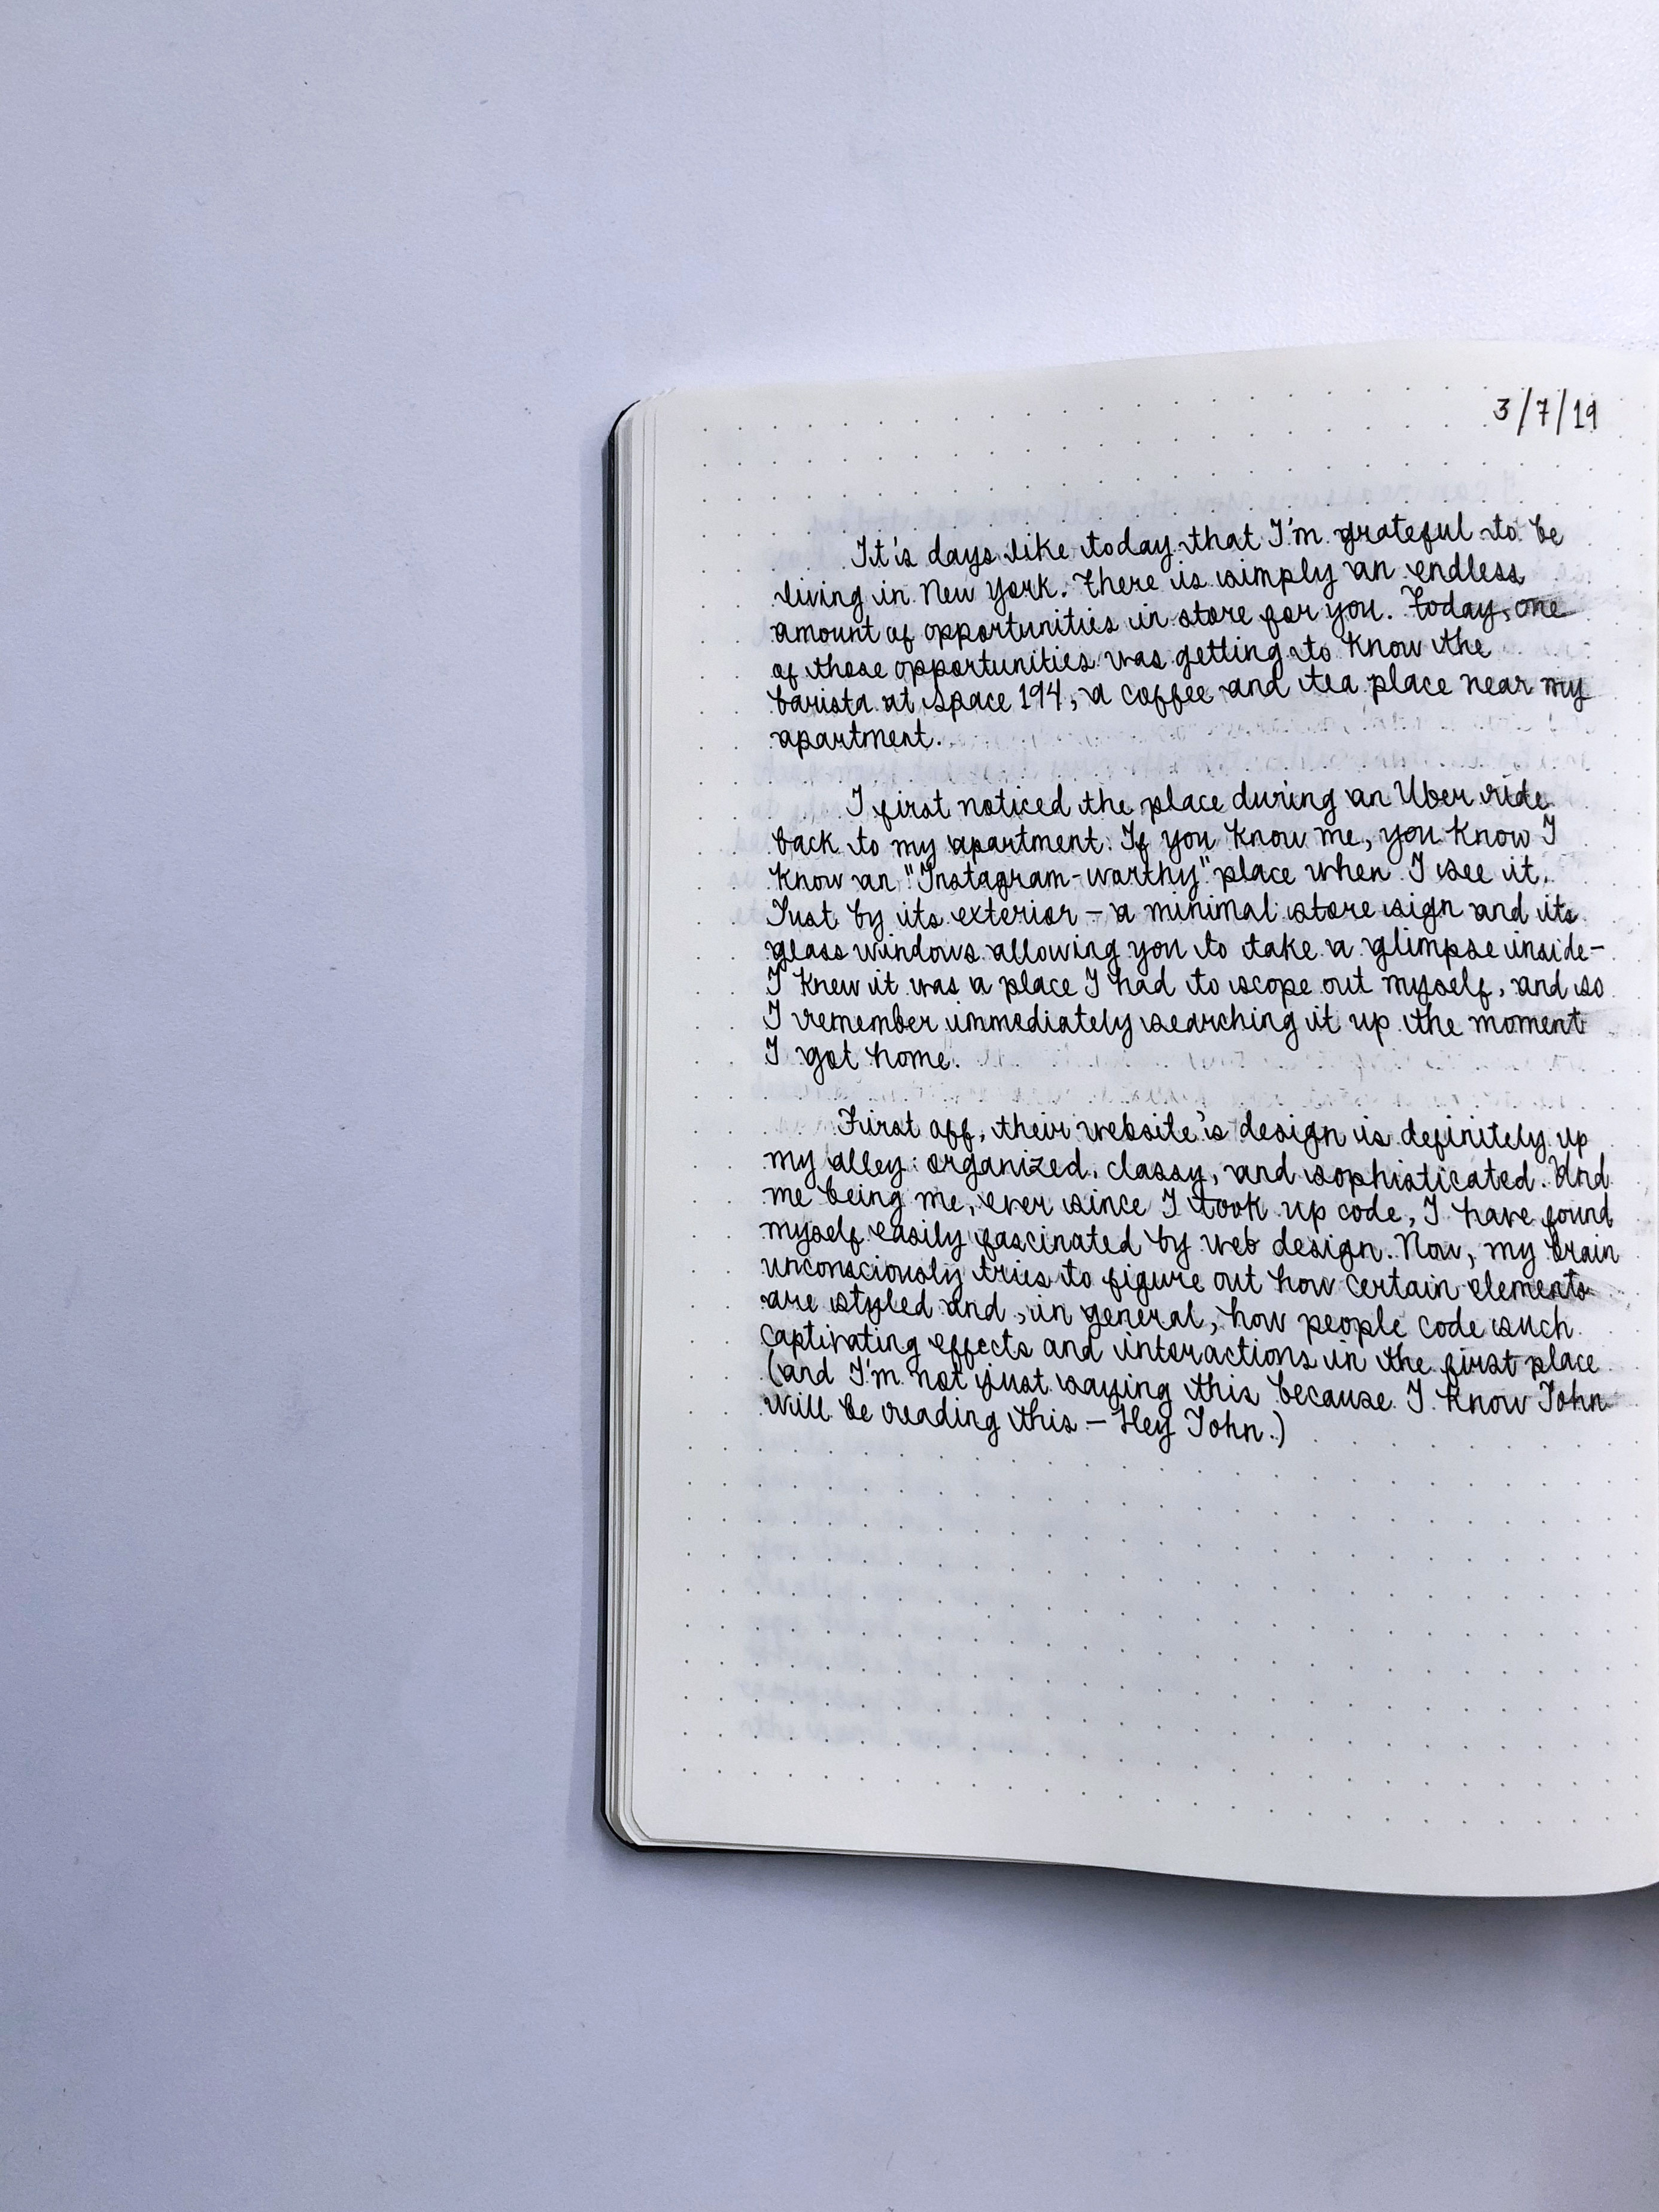 3/7/19
It's days like today that I'm grateful to be
living in New York. There is simply an endless
amount of opportunities in store for you. Today, one
of those opportunities was getting to know the
barista at Space 194, a coffee and tea place near my
apartment.
I first noticed the place during an Uber ride
back to my apartment. If you know me, you know I
know an "Instagram-worthy" place when I see it.
Just by its exterior – a minimal store sign and its
glass windows allowing you to take a glimpse inside –
I knew it was a place I had to scope out myself, and so
I remember immediately searching it up the moment
I got home.
First off, their website's design is definitely up
my alley: organized, classy, and sophisticated. And
me being me, ever since I took up code, I have found
myself easily fascinated by web design. Now, my brain
unconsciously tries to figure out how certain elements
are styled and, in general, how people code such
captivating effects and interactions in the first place
(and I'm not just saying this because I know John
will be reading this – Hey John.)